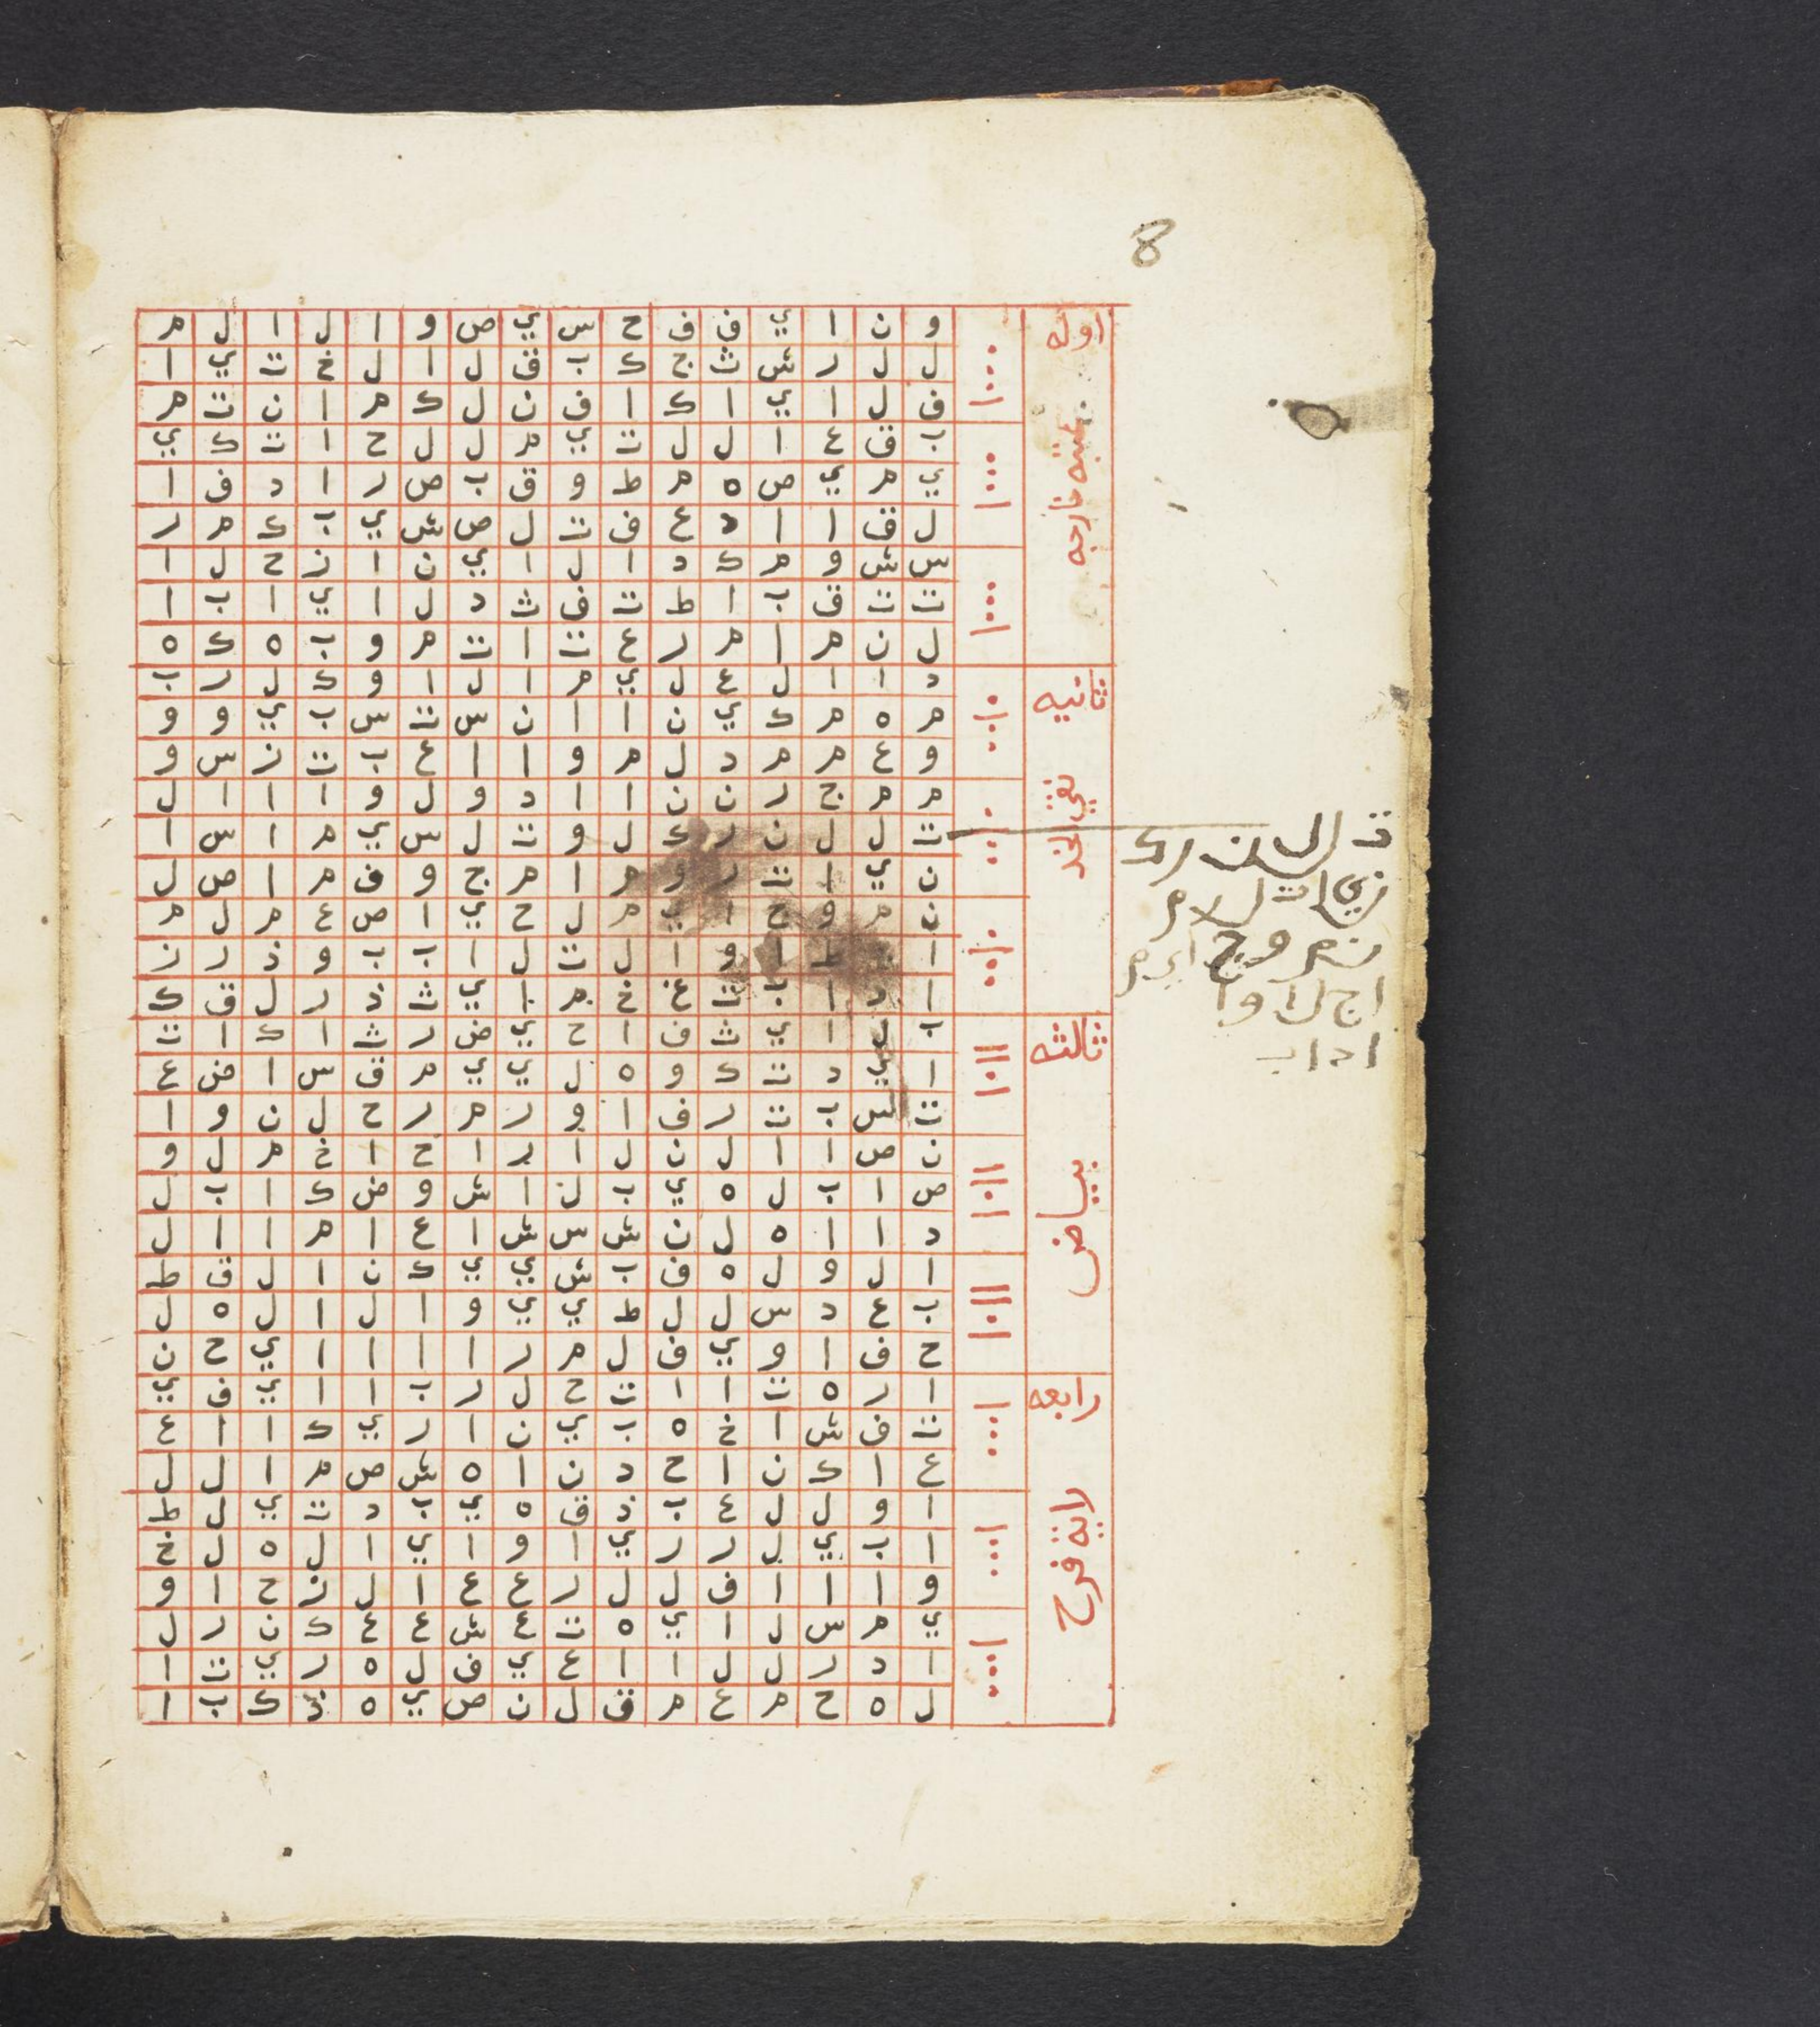 8
اوله
عتبة خارجه
و ن ا ي ف ف ح س ي ص و ا ل ا ل م
ل ل ر ش ث ج ك ب ق ل ا ل خ ت ي ا
ف ل ا ي ا ك ا ف ن ل ك م ا ن ت م
ب ق ع ا ل ل ت ي م ل ل ح ا ت ك ي
ي م ي ص ه م ط و ق ب ص ر ا د ف ا
ل ق ا ا د ع ف ت ل ص ش ي ب ك م ر
س ش و م ك د ا ل ا ي ن ا ز ح ل ا
ت ت ق ب ا ط ت ف ث د ل ا ي ا ب ا
ل ن م ا م ر ع ت ا ت م و ب ه ك ه
ثانيه
نقي الخد
د ا ا ل ع ل ي م ا ل ا و ك ل ر ب
م ه م ك ي ن ا ا ن س ت س ب ي و و
و ع م م د ل م و ا ا ع ب ت ز س و
م م ج ر ن ن ا ا د و ل و ا ا ا ل
ت ل ل ن ر ك ل و ت ل س ي م ا س ا
ن ي ا ت ر و م ا م ج و ف م ا ص ل
ن م و ح ا ب م ل ح ي ا ص ع م ل م
ا ط ا و ا ل ت ل ا ب ب و ذ ر ز
ا د ا ب ت غ خ م ا ي ث ذ ر ل ق ك
ثالثه
بياض
ب ل ا ي ث ف ا ح ي ض ر ث ا ك ا ت
ا ي د ت ك و ه ل ي ي م ق س ا ض ع
ت س ب ت ر ف ا و ر م ر ح ل ن و ا
ن ص ا ا ل ن ل ا ر ا ح ا خ م ل و
ص ا ب ل ه ي ب ل ا ش و ض ك ا ب ل
د ا ا ه ل ن ش س ش ا ع ا م ا ا ل
ا ل و ل ه ف ب ش ي ي ك ن ا ل ق ط
ب ع د س ل ل ط ي ي و ا ل ا ل ه ل
ح ف ا و ي ف ل م ر ا ا ا ا ي ح ن
رابعه
راية فرح
ا ر ه ت ا ا ت ح ل ر ب ا ا ي ف ي
ت ف ش ا خ ه ب ي ن ا ر ي ك ا ا ع
ع ا ك ن ا ح د ن ا ه ش ص م ا ل ل
ا و ل ل ع ب ذ ق ه ي ب د ت ي ل ط
ا ب ي ل ر ر ي ا و ا ي ا ل ه ل خ
و ا ا ا ف ل ل ر ع ع ا ل ز ح ا و
ي م س ل ا ي ه ت ع ش ع ع ك ن ر ل
ا د ر ل ل ا ا ع ي ف ل ه ر ي ت ا
ل ه ح م ع م ق ل ن ص ي ه ذ ك ب ا